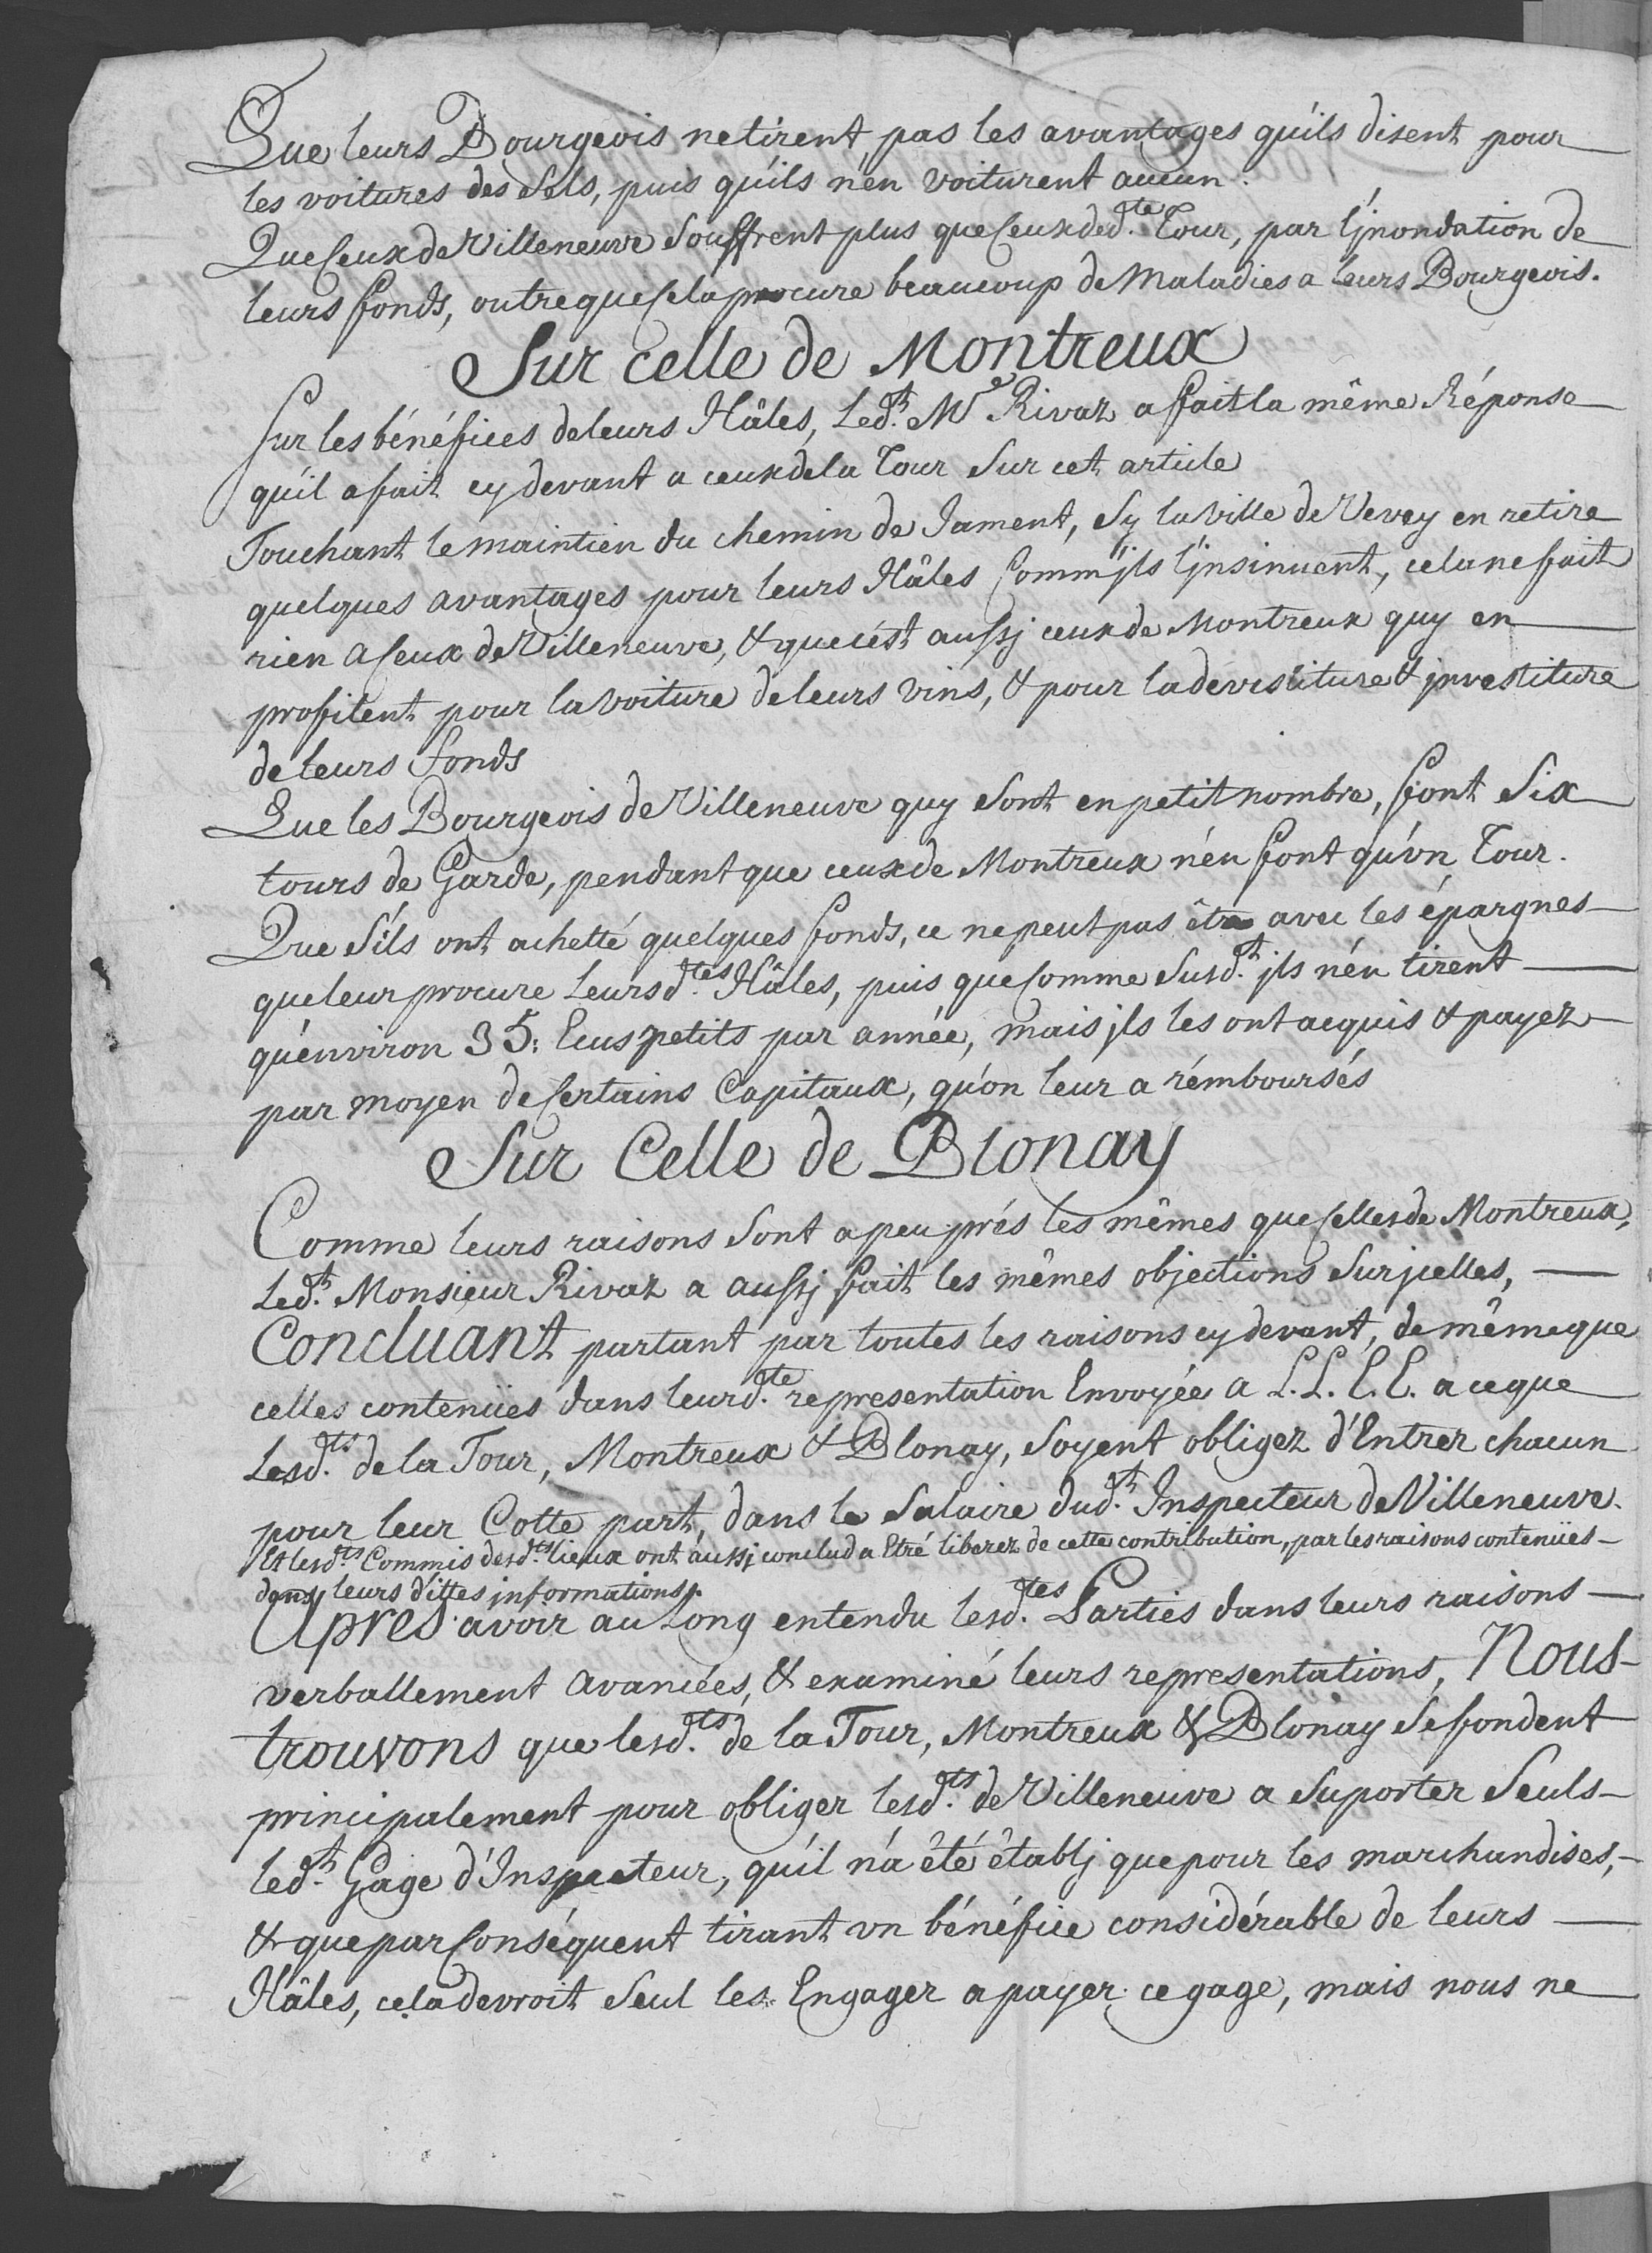 Que leurs Bourgeois ne tirent pas les avantages qu'ils disent pour
les voitures des Sels, puis qu'ils n'en voiturent aucun.
Que Ceux de Villeneuve Souffrent plus que Ceux de d.te Tour, par l'jnondation de
leurs fonds, outre que Cela procure beaucoup de Maladies a leurs Bourgeois.
Sur celle de Montreux
Sur les bénéfices de leurs Hâles, Led.t Mr Rivaz a fait la même Réponse
qu'il a fait cy devant a ceux de la Tour Sur cet article
Touchant le maintien du chemin de Jament, Sy la Ville de Vevey en retire
quelques avantages pour leurs Hâles Comm'jls l'jnsinuent, cela ne fait
rien a Ceux de Villeneuve, & que c'est aussj ceux de Montreux quy en
profitent pour la voiture de leurs vins, & pour la devestiture & jnvestiture
de leurs fonds
Que les Bourgeois de Villeneuve quy Sont en petit nombre, font Six
tours de Garde, pendant que ceux de Montreux n'en font qu'vn Tour.
Que S'ils ont achetté quelques fonds, ce ne peut pas être avec les épargnes
que leur procure Leursd.tes Hâles, puis que Comme Susd.t jls n'en tirent
qu'environ 35: Ecus petits par année, mais jls les ont acquis & payez
par moyen de Certains Capitaux, qu'on leur a rémboursés
Sur Celle de Blonay
Comme leurs raisons Sont a peu prés les mêmes que Celles de Montreux,
Led.t Monsieur Rivaz a aussj fait les mêmes objections Sur jcelles,
Concluant partant par toutes les raisons cy devant, de même que
celles contenües dans leurd.te representation Envoyée a L.L.E.E. a ce que
Lesd.ts de la Tour, Montreux & Blonay, Soyent obligez d'Entrer chacun
pour leur Cotte part, dans le Salaire dud.t Inspecteur de Villeneuve.
Et lesd.ts Commis desd.ts lieux ont aussj conclud a Etre liberez de cette contribution, par les raisons contenües
dans leurs dittes informations.
Apres avoir au Long entendu lesd.tes Parties dans leurs raisons
verballement avancées, & examiné leurs representations, Nous
trouvons que lesd.ts de la Tour, Montreux & Blonay Se fondent
principalement pour obliger lesd.ts de Villeneuve a Suporter Seuls
led.t Gage d'Inspecteur, qu'il n'a êté êtablj que pour les marchandises,
& que par Conséquent tirant vn bénéfice considérable de leurs
Hâles, cela devroit Seul les Engager a payer ce gage, mais nous ne